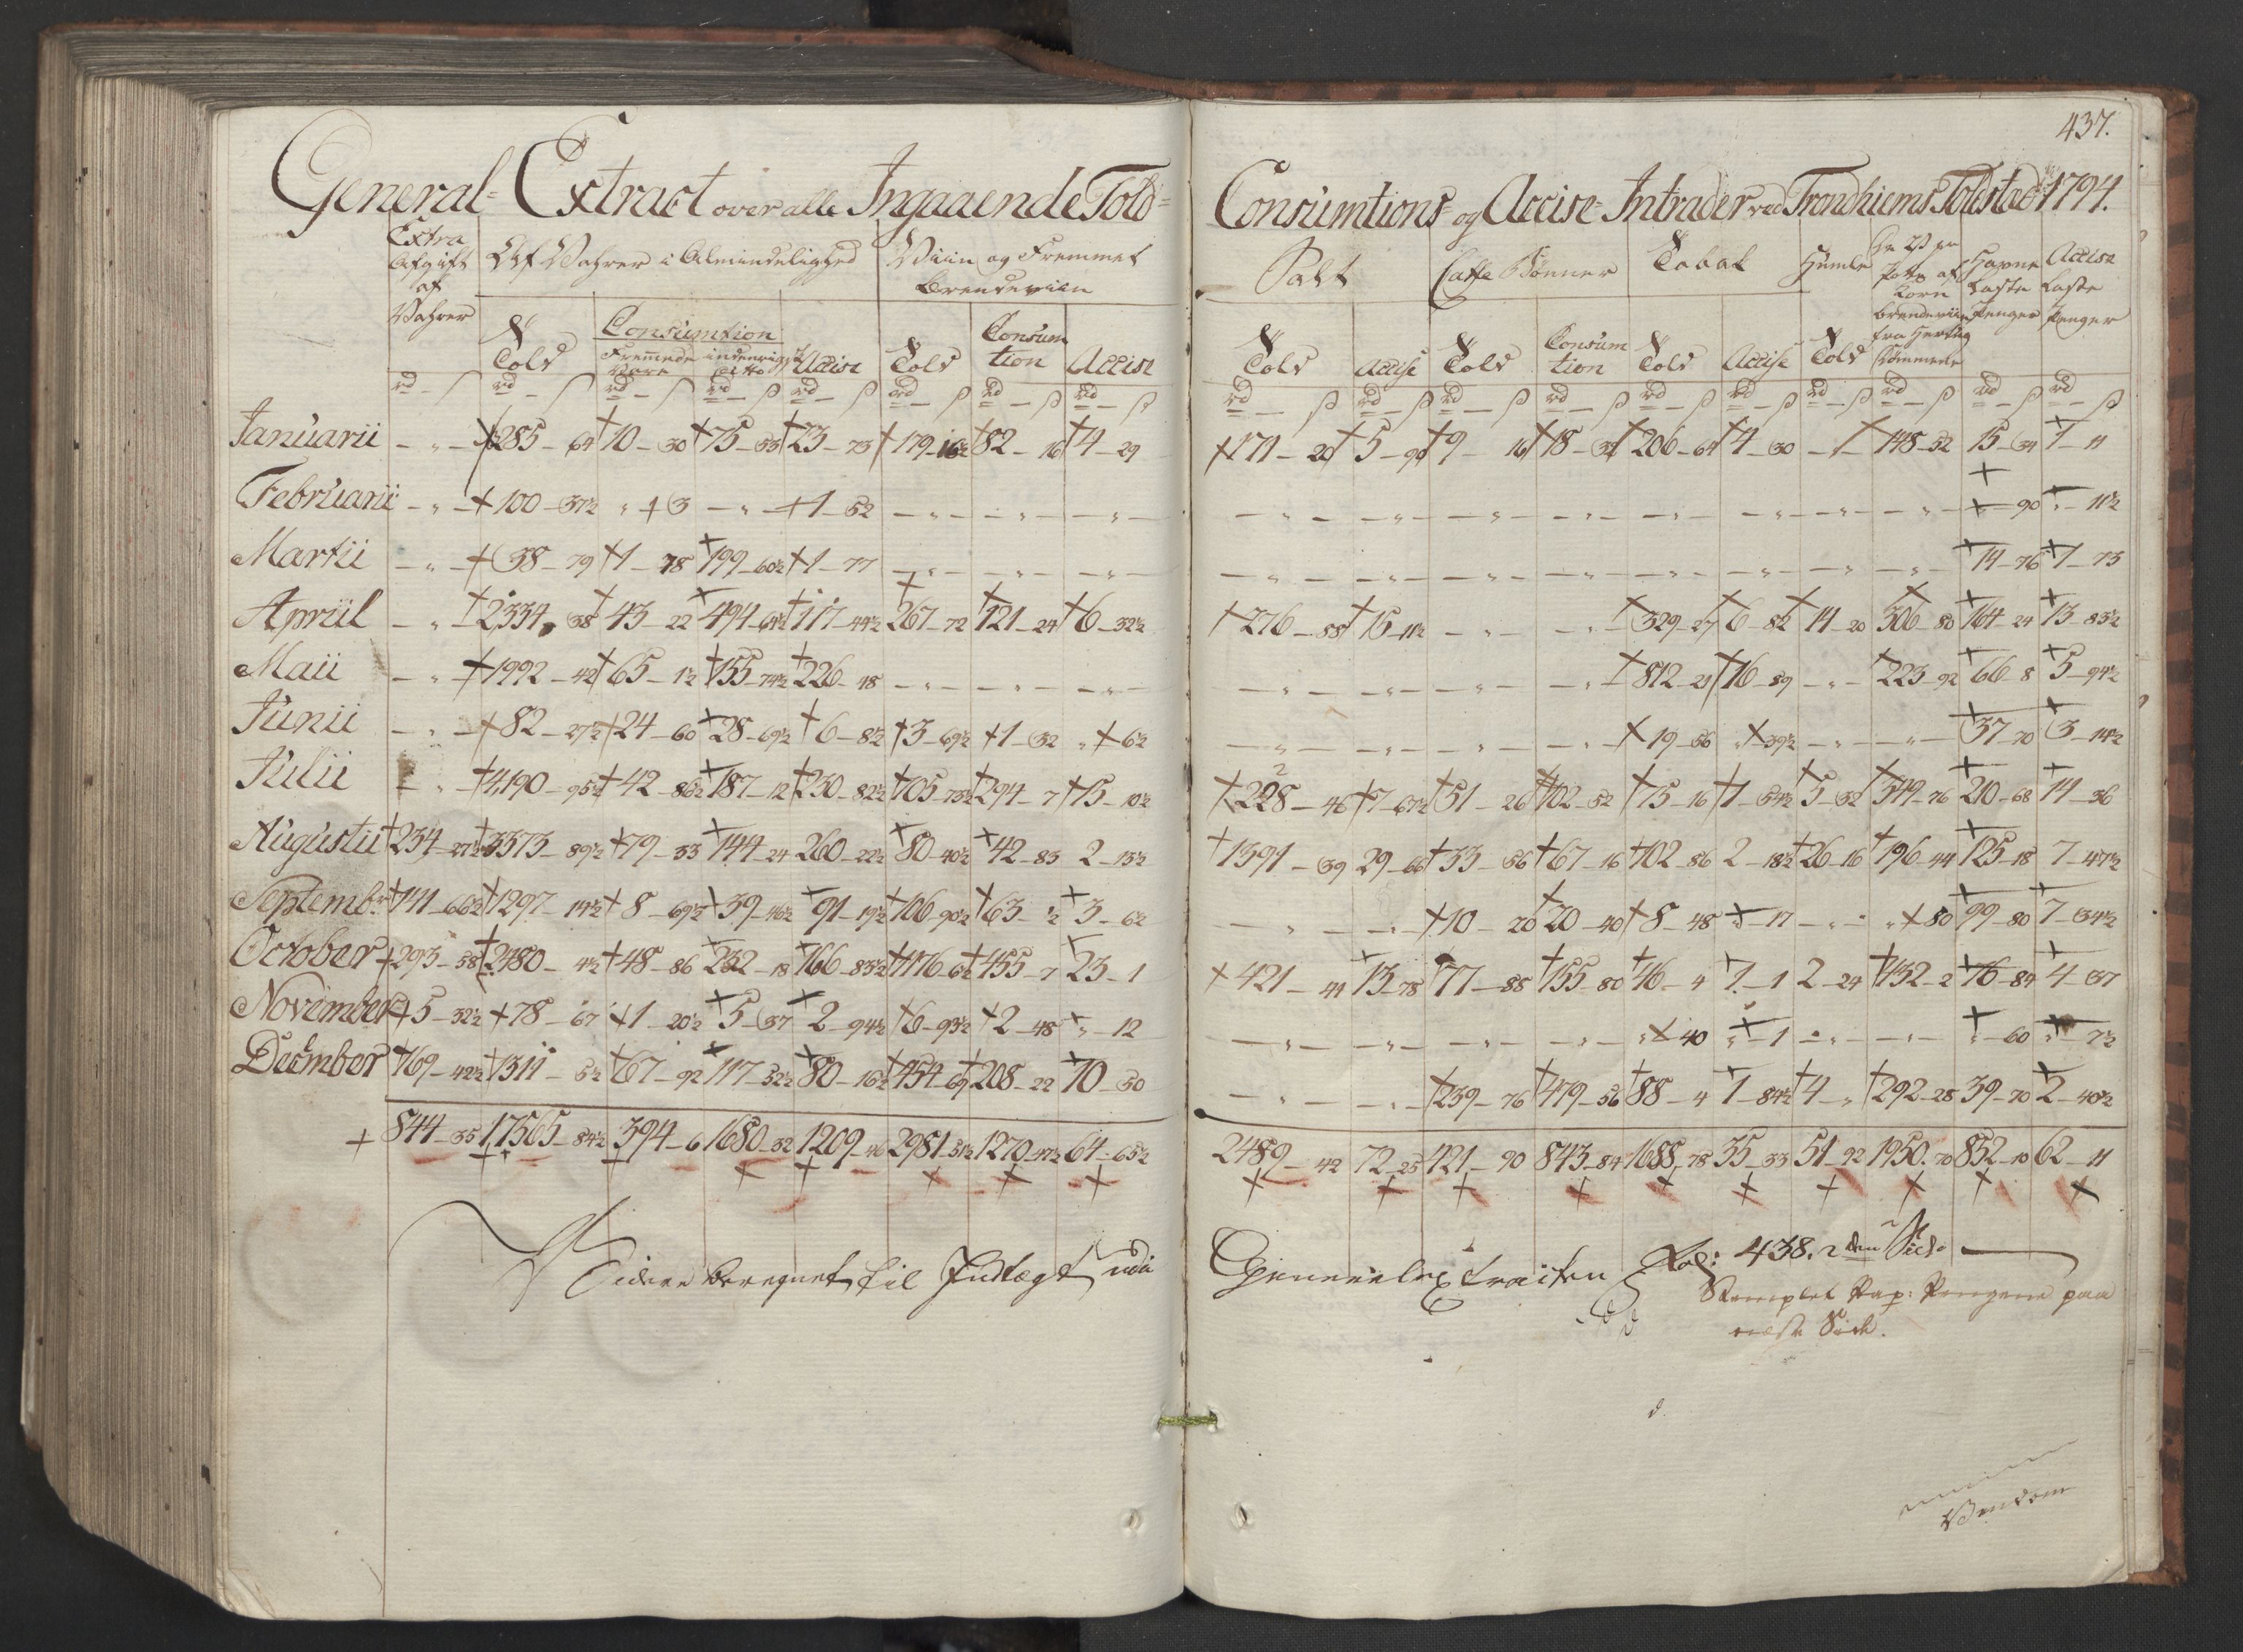 437.
General-Extract over alle Ingaaende Told-
Consumtions- og Accise-Intrader ved Trondhiems Toldsted 1794.
Extra Afgift af Vahrer
Af Vahrer i Almindelighed
Viin og Fremmet Brendeviin
Salt
Caffe Bønner
Tobak
Humle
Korn brendeviin fra Hertugdømmene
Havne Laste Penger
Accise Laste Penger
Told
Consumtion
Fremmede Vare
indenrigs ditto
Accise
Told
Consumtion
Accise
Told
Accise
Told
Consumtion
Told
Accise
Told
rd – ß rd – ß rd – ß rd – ß rd – ß rd – ß rd – ß rd – ß
rd – ß rd – ß rd – ß rd – ß rd – ß rd – ß rd – ß rd – ß rd – ß rd – ß
Januarii – „ – 285 – 64 10 – 30 75 – 53 23 – 73 179 – 16½ 82 – 16 4 – 29
171 – 20 5 – 90 9 – 16 18 – 32 206 – 64 4 – 30 – „ – 148 – 52 15 – 34 1 – 11
Februarii – „ – 100 – 37½ „ 3 – „ – 1 – 52 – „ – – „ – – „ –
– „ – – „ – – „ – – „ – – „ – – „ – – „ – – „ – – 90 „ – 11½
Martii – „ – 38 – 79 1 – 78 199 – 60½ 1 – 77 – „ – – „ – – „ –
– „ – – „ – – „ – – „ – – „ – – „ – – „ – – „ – 14 – 76 1 – 73
Apriil – „ – 2334 – 38 43 – 22 494 – 64½ 117 – 44½ 267 – 72 121 – 24 6 – 32½
276 – 58 15 – 11½ – „ – – „ – 329 – 27 6 – 82 14 – 20 306 – 80 164 – 24 13 – 83½
Maii – „ – 1992 – 42 65 – 1½ 155 – 74½ 226 – 18 – „ – – „ – – „ –
– „ – – „ – – „ – – „ – 812 – 21 16 – 89 – „ – 223 – 92 66 – 8 5 – 94½
Junii – „ – 82 – 27½ 24 – 60 28 – 69½ 6 – 8½ 3 – 69½ 1 – 32 „ 6½
– „ – – „ – – „ – – „ – 19 – 56 „ 39½ – „ – – „ – 37 – 70 3 – 14½
Julii – „ – 4190 – 95½ 42 – 86½ 187 – 12 230 – 82½ 705 – 73½ 294 – 7 15 – 10½
228 – 46 7 – 67½ 51 – 26 102 – 52 75 – 16 1 – 54½ 5 – 32 349 – 76 210 – 68 14 – 36
Augustii 234 – 27½ 3373 – 89½ 79 – 33 144 – 24 260 – 22½ 80 – 40½ 42 – 83 2 – 13½
1391 – 39 29 – 66 33 – 56 67 – 16 102 – 86 2 – 18½ 26 – 16 196 – 44 125 – 18 7 – 47½
Septembr. 141 – 66½ 1297 – 14½ 8 – 69½ 39 – 46½ 91 – 19½ 106 – 90½ 63 – ½ 3 – 6½
– „ – – „ – 10 – 20 20 – 40 8 – 48 „ – 17 – „ – „ 80 99 – 80 7 – 34½
October 293 – 58 2480 – 4½ 48 – 86 232 – 18 166 – 83½ 1176 – 6½ 455 – 7 23 – 1
421 – 44 13 – 78 77 – 88 155 – 80 46 – 4 1 – 1 2 – 24 432 – 2 76 – 84 4 – 37
November 5 – 32½ 78 – 67 1 – 20½ 5 – 37 2 – 94½ 6 – 93½ 2 – 48 „ – 12
– „ – – „ – – „ – – „ – „ 40 „ – 1 – „ – – „ – „ – 60 „ – 7½
December 169 – 42½ 1311 – 5½ 67 – 92 117 – 52½ 80 – 16½ 454 – 69 208 – 22 10 – 50
– „ – – „ – 239 – 76 479 – 56 88 – 4 1 – 84½ 4 – „ 292 – 28 39 – 70 2 – 40½
844 – 35 17565 – 84½ 394 – 6 1680 – 32 1209 – 46 2981 – 51½ 1270 – 47½ 64 – 65½
2489 – 42 72 – 25 421 – 90 843 – 84 1688 – 78 35 – 33 51 – 92 1950 – 70 852 – 10 62 – 11
Videre beregnet til Indtægt udi
Generalextracten Fol: 438. 2den Side
Stemplet Pap: Pengene paa
næste Side.